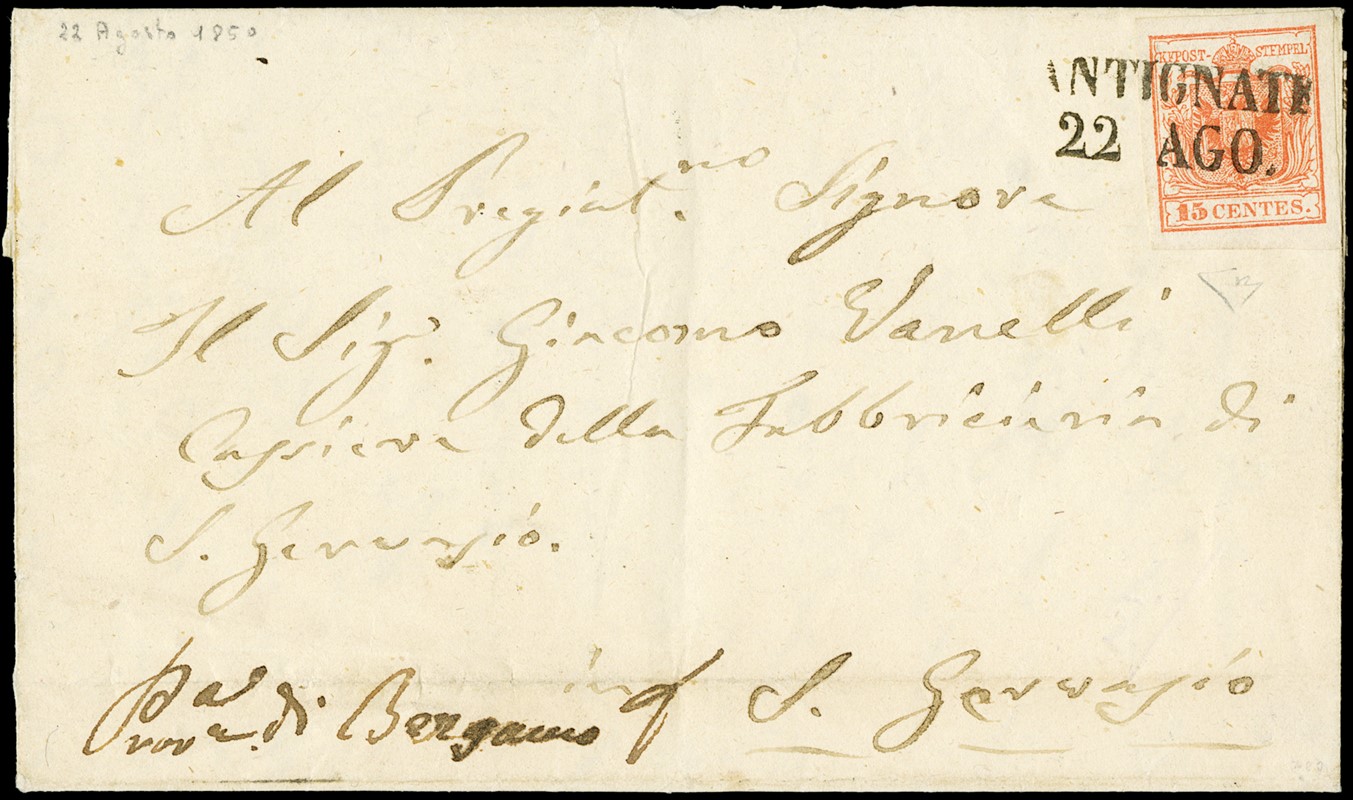 22 Agosto 1850
KKPOST-STEMPEL
ANTIGNATE
22 AGO.
15 CENTES.
Al Pregiat.mo Signore
Il Sigr. Giacomo Vanelli
Cassiere della Fabbriciaria di
S. Gervasio.
in S. Gervasio
Prova. di Bergamo